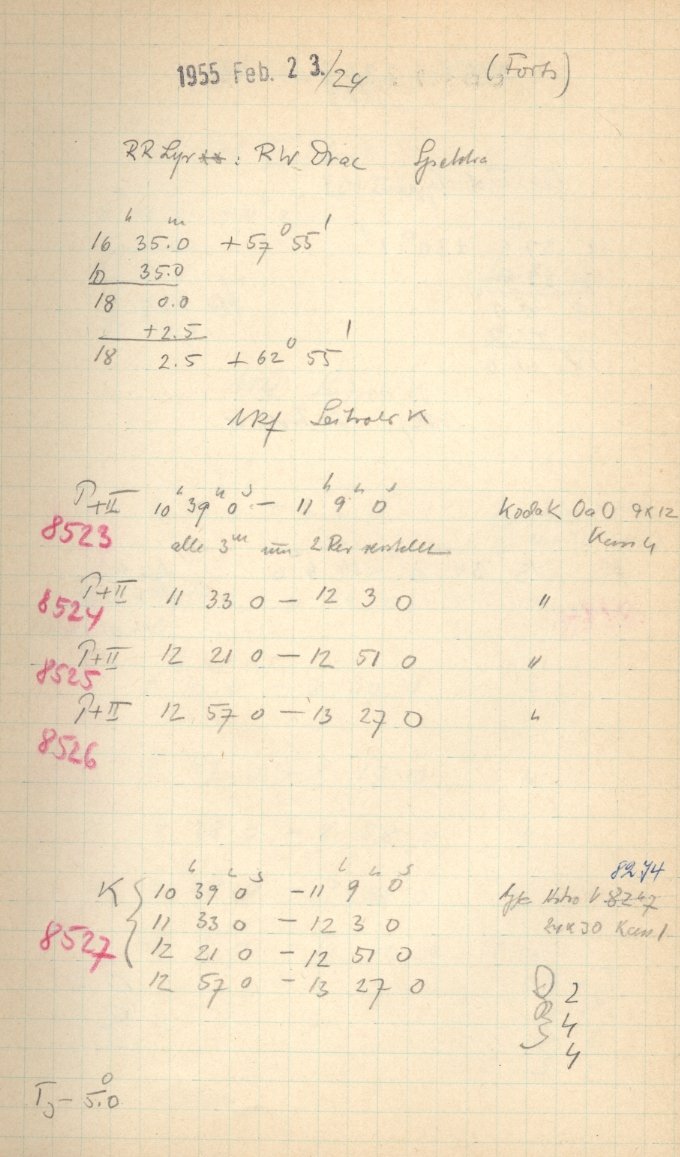 1955 Feb. 23./24 (Forts)
RR Lyr: RW Drac Spektra
16 h 35.0 m +57° 55'
35.0
18 0.0
+2.5
18 2.5 +62° 55'
Leitrohr K
P+II 10 h 39 m 0 s — 11 h 9 m 0 s Kodak OaO 9x12
8523 alle 3 m um 2 Rev verstellt Kass 4
8524 P+II 11 33 0 — 12 3 0 "
8525 P+II 12 21 0 — 12 51 0 "
P+II 12 57 0 — 13 27 0 "
8526
8274
K 10 h 39 m 0 s — 11 h 9 m 0 s Astro
11 33 0 — 12 3 0 24x30 Kass 1
8527 12 21 0 — 12 51 0
12 57 0 — 13 27 0
D 2
B 4
S 4
T — 5.0°